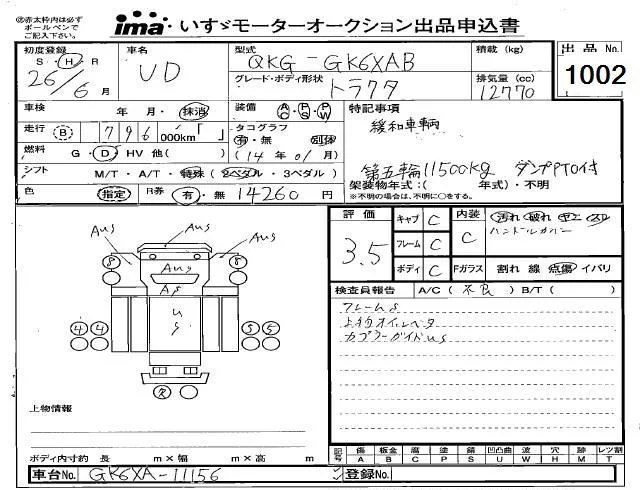 ㊟赤太枠内は必ず
ボールペンで
ご記入下さい。
ima いすゞモーターオークション出品申込書
初度登録
S・H・R
26/6月
車名
UD
型式
QKG-GK6XAB
グレード・ボディ形状
トラクタ
積載(kg)
排気量(cc)
12770
出品No.
1002
車検
年・月・抹消
装備
AC・PS・PW
特記事項
緩和車輌
走行
B
796
000km「 」
タコグラフ
有・無 別体
(14年01月)
燃料
G・D・HV 他( )
シフト
M/T・A/T・特殊(2ペダル・3ペダル)
第五輪11500kg ダンプPTO付
架装物年式:( 年式)・不明
※不明の場合は、不明に○をする。
色
指定
R券
有・無
14260円
評価
3.5
キャブ
C
フレーム
C
ボディ
C
内装
C
汚れ 破れ
ハンドルカバー
Fガラス
割れ 線 点傷 イバリ
検査員報告
A/C(不良)B/T( )
フレームS
カプラーガイドUS
AUS
AUS
AUS
AUS
AS
US
8
8
4 4
5 5
欠
上物情報
ボディ内寸約 長 m×幅 m×高 m
記号
傷 A
板金 B
腐 C
塗 P
錆 S
凹凸曲 U
波 W
穴 H
跡 M
レツ割 T
車台No.
GK6XA-11156
登録No.